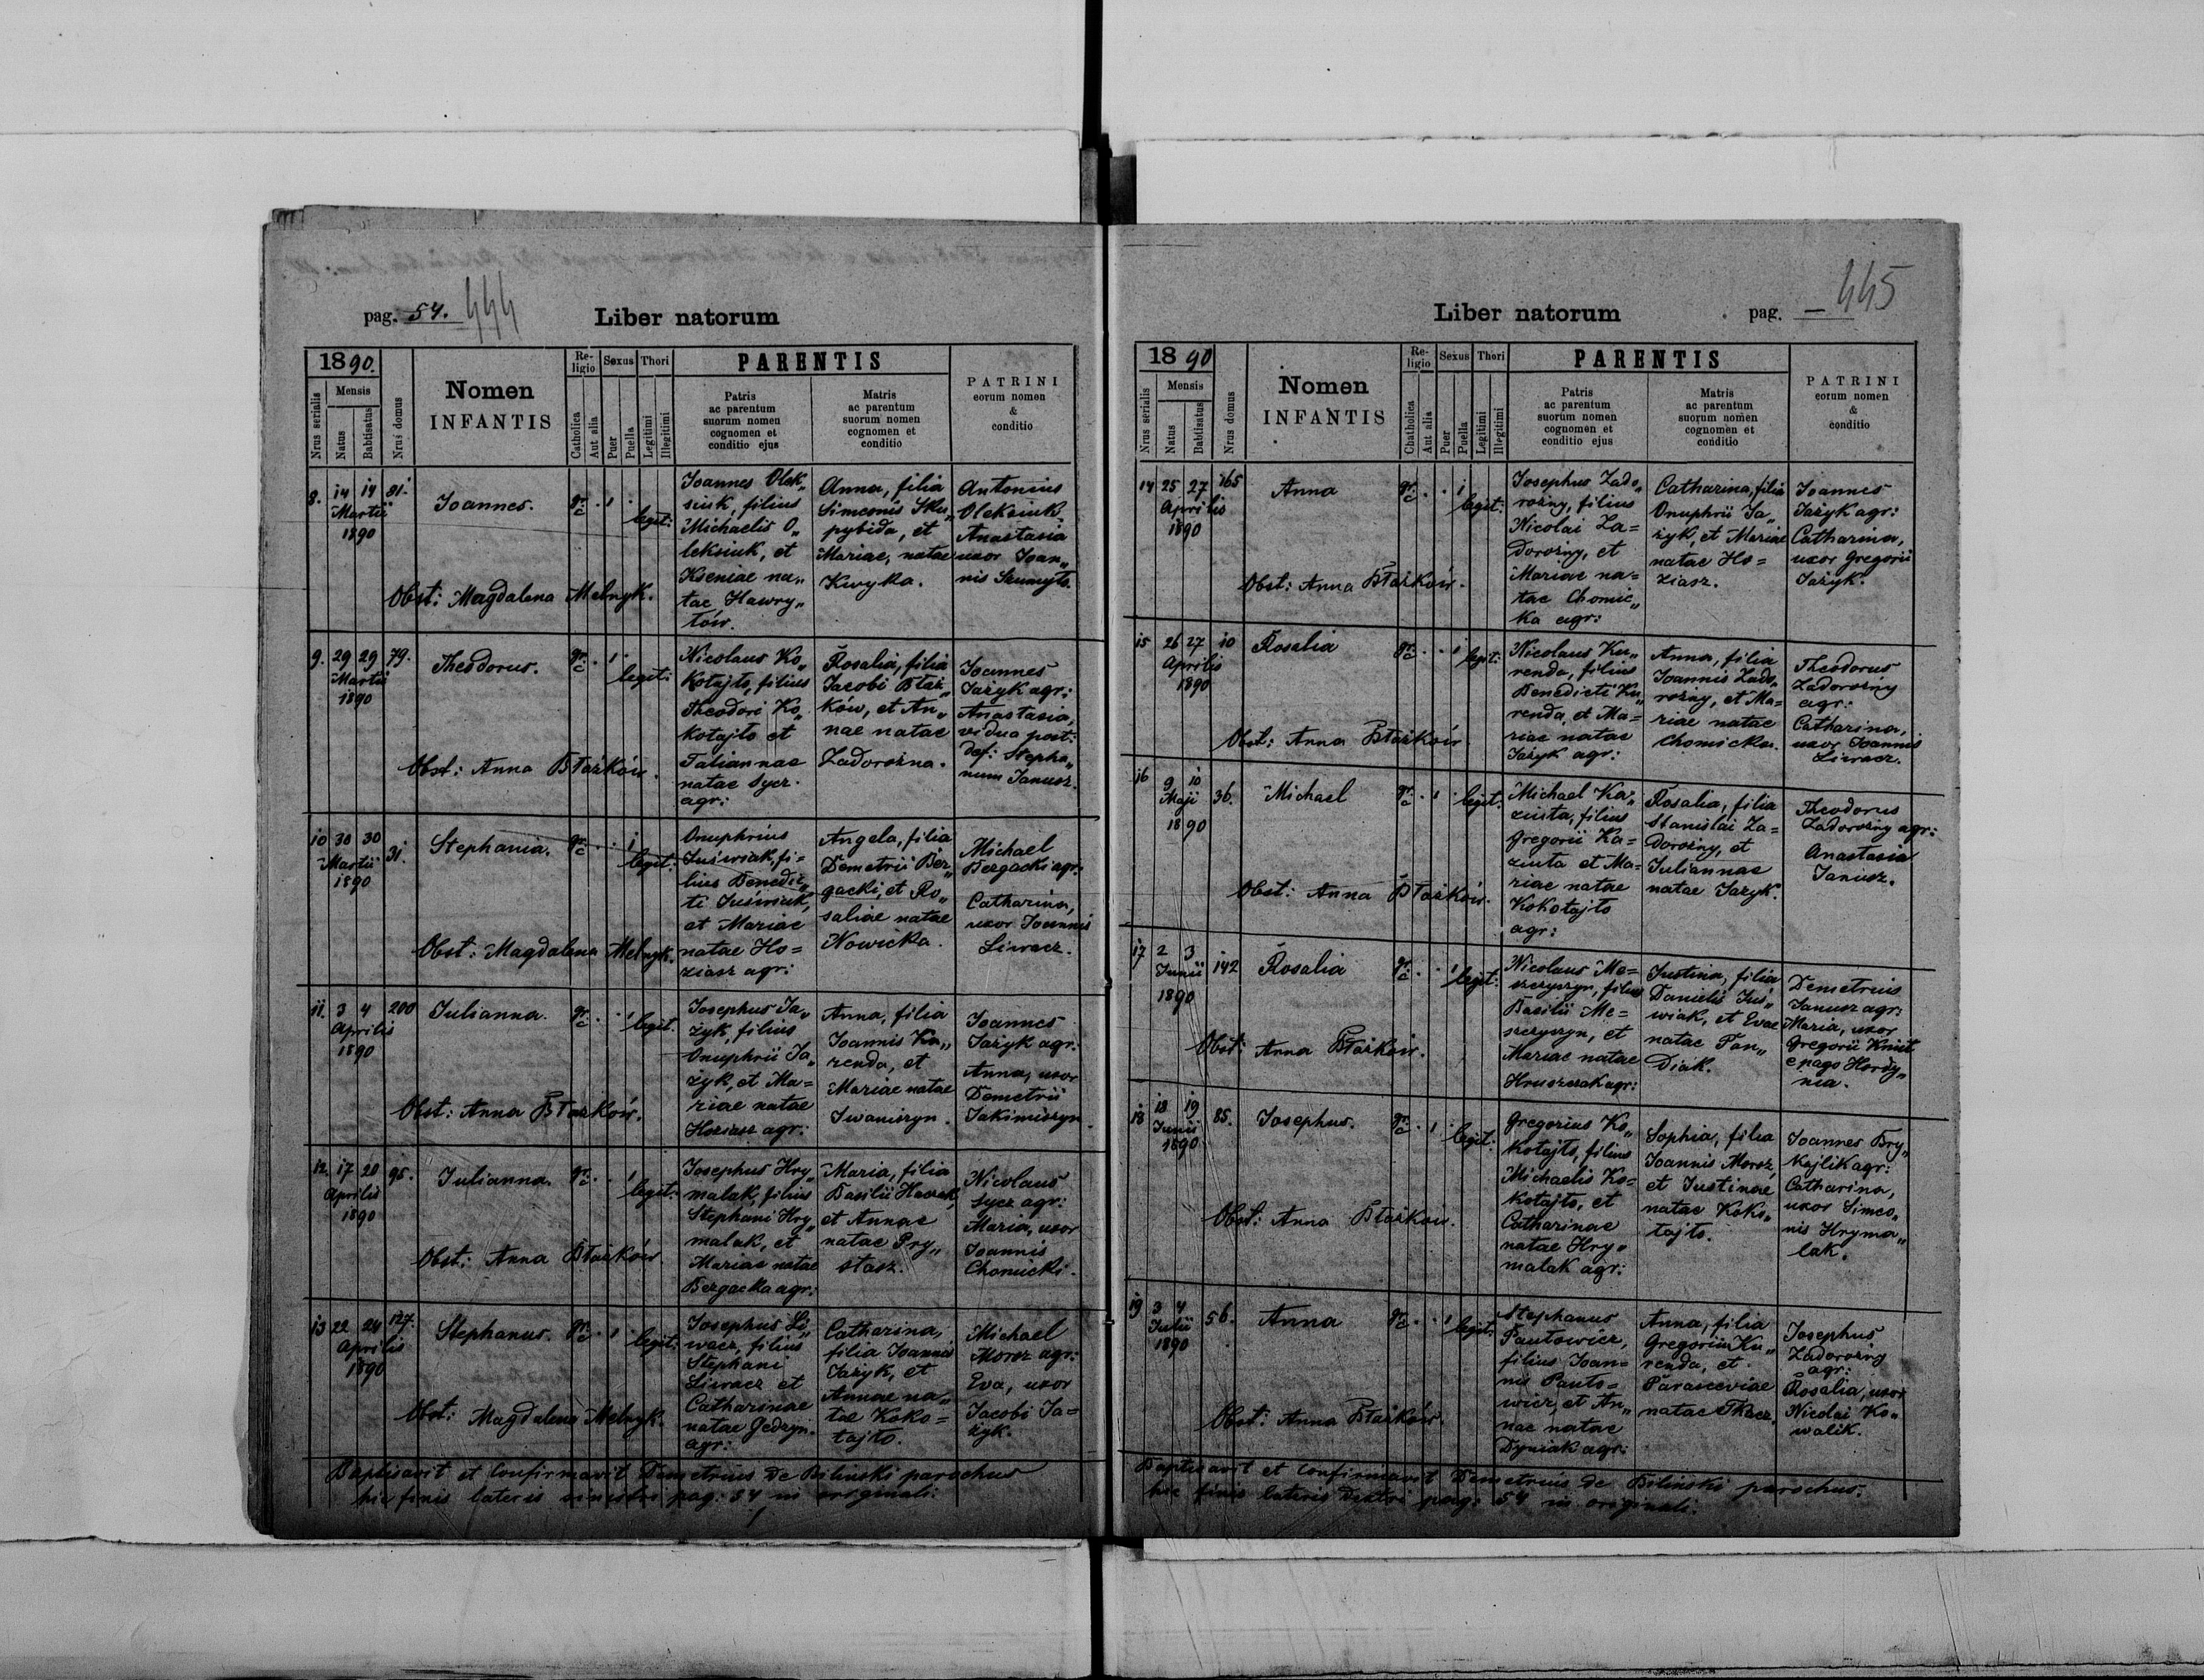 pag. 54. 444
Liber natorum
1890.
Nrus serialis
Mensis
Natus
Babtisatus
Nrus domus
Nomen
INFANTIS
Re-
ligio
Catholica
Aut alia
Sexus
Puer
Puella
Thori
Legitimi
Illegitimi
PARENTIS
Patris
ac parentum
suorum nomen
cognomen et
conditio ejus
Matris
ac parentum
suorum nomen
cognomen et
conditio
PATRINI
eorum nomen
&
conditio
8. 14 14 81.
Martii
1890
Joannes.
gr. c. . 1 .
legit:
Joannes Olek„
siuk, filius
Michaelis O„
leksiuk, et
Kseniae na„
tae Hawry„
łów.
Anna, filia
Simeonis Sku„
pybida, et
Mariae, natae
Kwyka.
Antonius
Oleksiuk
Anastasia
uxor Joan„
nis Szumyło.
Obst: Magdalena Melnyk.
9. 29 29 79.
Martii
1890
Theodorus.
gr. c. . 1 .
legit:
Nicolaus Ko„
kotajło, filius
Theodori Ko„
kotajło et
Taliannae
natae Sycz.
agr:
Rosalia, filia
Jacobi Błaż„
ków, et An„
nae natae
Zadorożna.
Joannes
Jażyk agr:
Anastasia,
vidua post:
def: Stepha„
num Janusz.
Obst: Anna Błażków.
10 30 30
Martii 31.
1890
Stephania.
gr. c. . . 1
legit:
Onuphrius
Juświak, fi=
lius Benedic„
ti Juświak,
et Mariae
natae Ho=
ziasz agr:
Angela, filia
Demetrii Ber„
gacki, et Ro„
saliae natae
Nowicka.
Michael
Bergacki agr:
Catharina,
uxor Joannis
Liwacz.
Obst: Magdalena Melnyk.
11. 3 4 200
Aprilis
1890
Julianna.
gr. c. . . 1
legit.
Josephus Ja„
żyk, filius
Onuphrii Ja„
żyk, et Ma=
riae natae
Hoziasz agr:
Anna, filia
Joannis Ku„
renda, et
Mariae natae
Iwaniszyn.
Joannes
Jażyk agr:
Anna, uxor
Demetrii
Jakimiszyn.
Obst: Anna Błażków.
12. 17 20 95.
Aprilis
1890
Julianna.
gr. c. . . 1
legit:
Josephus Hry„
malak, filius
Stephani Hry„
malak, et
Mariae natae
Bergacka agr:
Maria, filia
Basilii
et Annae
natae Pry„
stasz.
Nicolaus
Sycz agr:
Maria, uxor
Joannis
Chomicki.
Obst: Anna Błażków.
13 22 24 127.
Aprilis
1890
Stephanus.
gr. c. . 1 .
legit:
Josephus Li„
wacz, filius
Stephani
Liwacz et
Catharinae
natae Gedzyn.
agr:
Catharina,
filia Joannis
Jażyk, et
Annae na„
tae Koko=
tajło.
Michael
Moroz agr:
Eva, uxor
Jacobi Ja=
żyk.
Obst: Magdalena Melnyk.
Baptisavit et Confirmavit Demetrius de Bilinski parochus
hic finis lateris sinistri pag: 54 in originali:
Liber natorum
pag. — 445
1890
Nrus serialis
Mensis
Natus
Babtisatus
Nrus domus
Nomen
INFANTIS
Re-
ligio
Chatholica
Aut alia
Sexus
Puer
Puella
Thori
Legitimi
Illegitimi
PARENTIS
Patris
ac parentum
suorum nomen
cognomen et
conditio ejus
Matris
ac parentum
suorum nomen
cognomen et
conditio
PATRINI
eorum nomen
&
conditio
14 25 27 165
Aprilis
1890
Anna
gr. c. . . 1
legit:
Josephus Zado„
rożny, filius
Nicolai Za=
dorożny, et
Mariae na=
tae Chomic„
ka agr:
Catharina, filia
Onuphrii Ja„
żyk, et Mariae
natae Ho=
ziasz.
Joannes
Jażyk agr:
Catharina,
uxor Gregorii
Jażyk.
Obst: Anna Błażków.
15 26 27 10
Aprilis
1890
Rosalia
gr. c. . . 1
legit:
Nicolaus Ku„
renda, filius
Benedicti Ku„
renda, et Ma=
riae natae
Jażyk agr:
Anna, filia
Joannis Zado„
rożny, et Ma=
riae natae
Chomicka.
Theodorus
Zadorożny
agr:
Catharina,
uxor Joannis
Liwacz.
Obst: Anna Błażków
16 9 10
Maji 36.
1890
Michael
gr. c. . 1 .
legit:
Michael Ka„
ziuta, filius
Gregorii Ka=
ziuta et Ma=
riae natae
Kokotajło
agr:
Rosalia, filia
Stanislai Za=
dorożny, et
Juliannae
natae Jażyk.
Theodorus
Zadorożny agr:
Anastasia
Janusz.
Obst: Anna Błażków.
17 2 3
Junii 142
1890
Rosalia
gr. c. . . 1
legit:
Nicolaus Me=
szczyszyn, filius
Basilii Me=
szczyszyn, et
Mariae natae
Hruszczak agr:
Justina, filia
Danielis Juś„
wiak, et Evae
natae Pan„
diak.
Demetrius
Janusz agr:
Maria, uxor
Gregorii Kmit
e pago Hordy„
nia.
Obst: Anna Błażków.
18 18 19 85.
Junii
1890
Josephus.
gr. c. . 1 .
legit:
Gregorius Ko„
kotajło, filius
Michaelis Ko=
kotajło, et
Catharinae
natae Hry„
malak agr:
Sophia, filia
Joannis Moroz,
et Justinae
natae Koko„
tajło.
Joannes Bry„
kajlik agr:
Catharina,
uxor Simeo„
nis Hryma„
lak.
Obst: Anna Błażków.
19 3 4 56.
Julii
1890
Anna
gr. c. . . 1
legit:
Stephanus
Pautowicz,
filius Joan=
nis Pauto=
wicz, et An„
nae natae
Dyniak agr:
Anna, filia
Gregorii Ku„
renda, et
Parasceviae
natae Tkacz.
Josephus
Zadorożny
agr:
Rosalia, uxor
Nicolai Ko„
walik.
Obst: Anna Błażków.
Baptisavit et Confirmavit Demetrius de Bilinski parochus.
hic finis lateris dextri pag: 54 in originali.